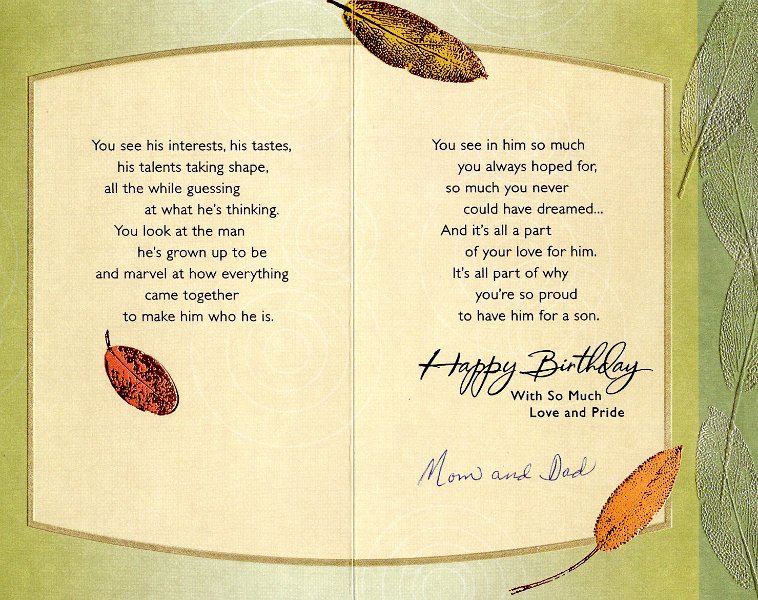 You see his interests, his tastes,
his talents taking shape,
all the while guessing
at what he's thinking.
You look at the man
he's grown up to be
and marvel at how everything
came together
to make him who he is.
You see in him so much
you always hoped for,
so much you never
could have dreamed...
And it's all a part
of your love for him.
It's all part of why
you're so proud
to have him for a son.
Happy Birthday
With So Much
Love and Pride
Mom and Dad